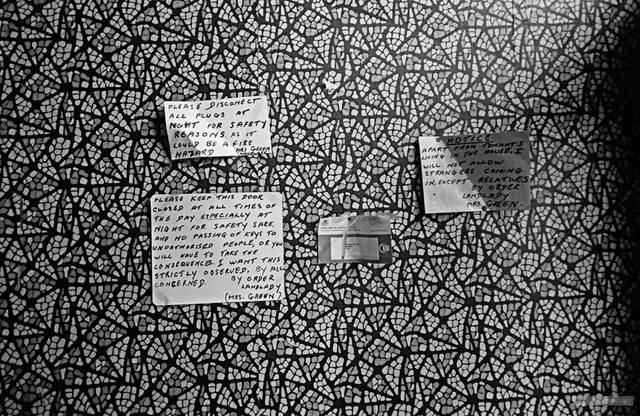 PLEASE DISCONECT
ALL PLUGS AT
NIGHT FOR SAFETY
REASONS. AS IT
COULD BE A FIRE
HAZARD MRS GREEN
PLEASE KEEP THIS DOOR
CLOSED AT ALL TIMES OF
THE DAY ESPECIALLY AT
NIGHT FOR SAFETY SAKE.
AND NO PASSING OF KEYS TO
UNORTHORISED PEOPLE, OR YOU
WILL HAVE TO TAKE THE
CONSEQUENCES. I WANT THIS
STRICTLY OBSERVED. BY ALL
CONCERNED. BY ORDER
LANDLADY
(MRS. GREEN)
NOTICE
APART FROM TENANTS
LIVING IN THE HOUSE. I
WILL NOT ALLOW
STRANGERS COMING
IN. EXCEPT RELATIVES
BY ORDER
LANDLADY
MRS. GREEN.